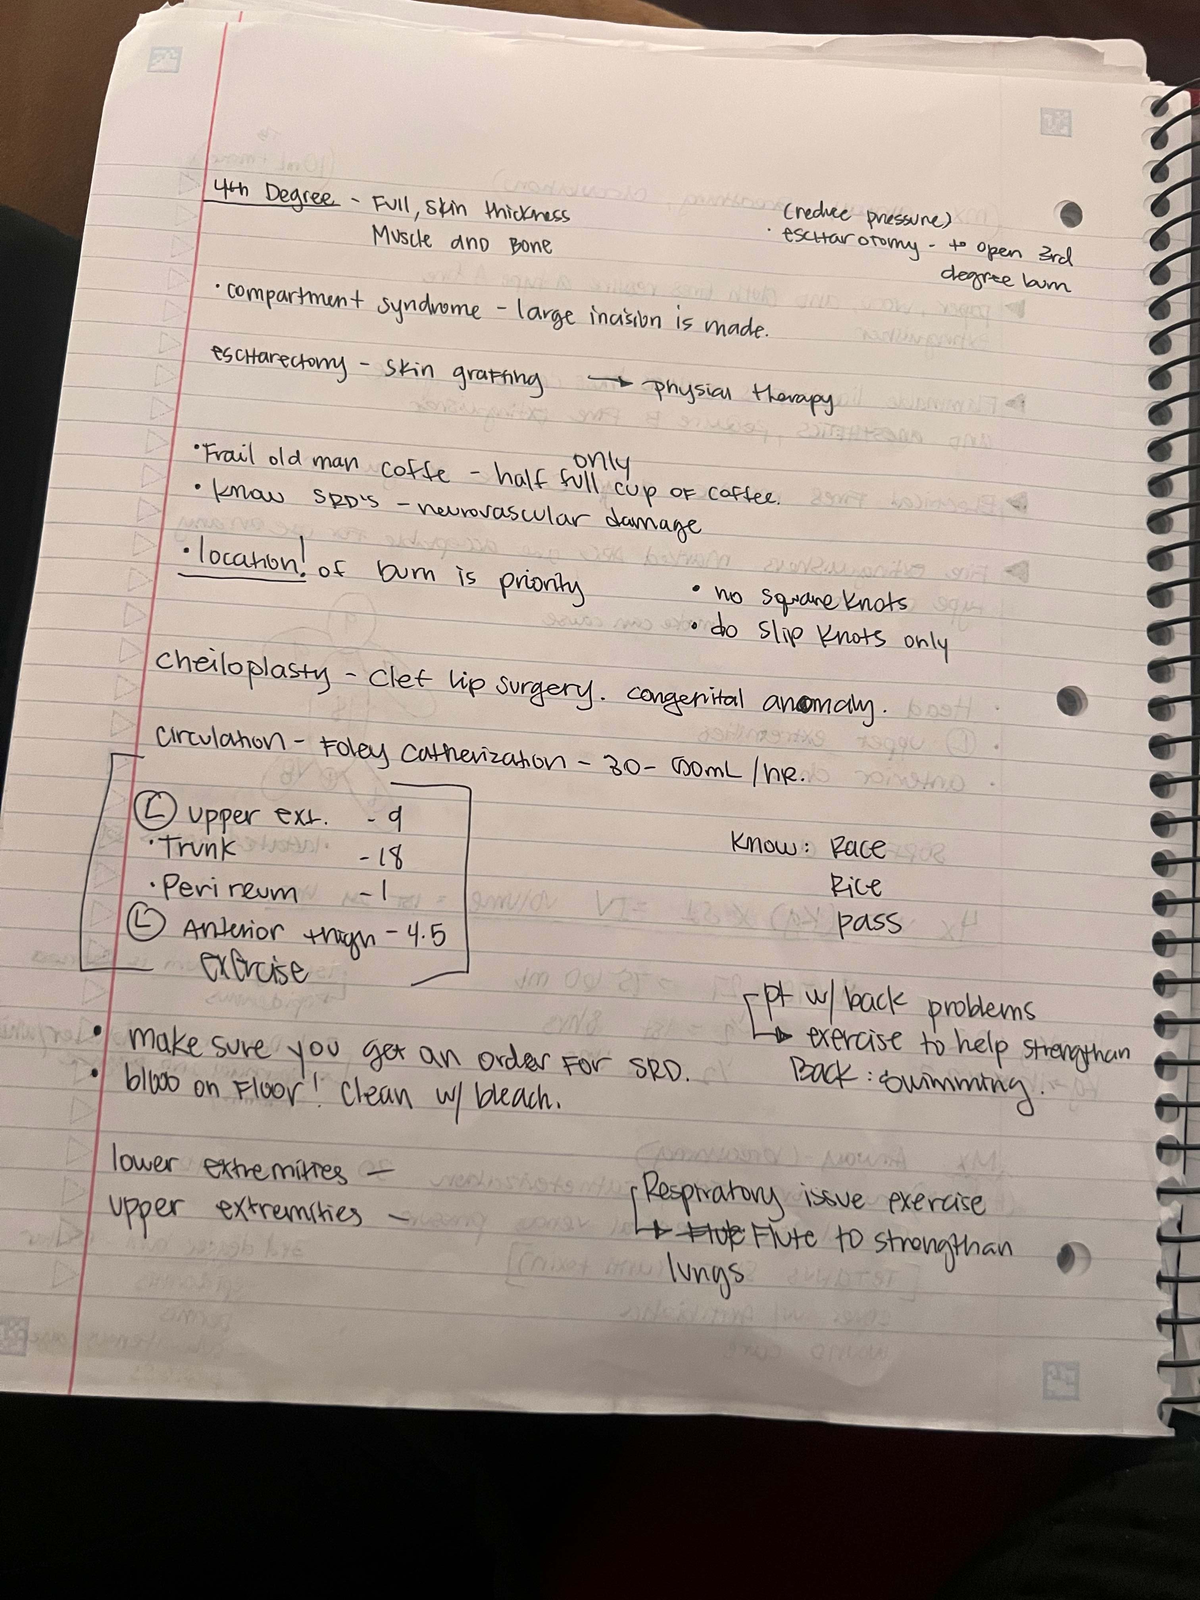 4th Degree - Full, skin thickness
Muscle and Bone
(reduce pressure)
· escHarotomy - to open 3rd
degree burn
· compartment syndrome - large incision is made.
escHarectomy - skin grafting → physical therapy
· Frail old man coffe - half full only cup of coffee.
· know SRD's - neurovascular damage
· location! of burn is priority
• no square knots
• do slip knots only
cheiloplasty - clef lip surgery. congenital anomaly.
circulation - Foley catherization - 30- mL/hr.
Ⓛ upper ext. - 9
· Trunk - 18
· Perineum - 1
Ⓛ Anterior thigh - 4.5
exercise
Know: Race
Rice
pass
pt w/ back problems
→ exercise to help strengthan
Back: swimming.
• make sure you get an order for SRD.
• blood on floor! clean w/ bleach.
lower extremities -
upper extremities -
Respiratory issue exercise
→ Flute to strengthan
lungs